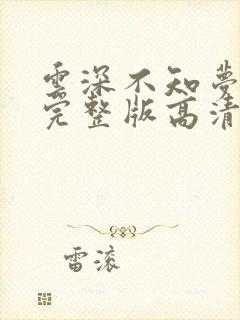 雲深不知夢
完整版高清
雷滚